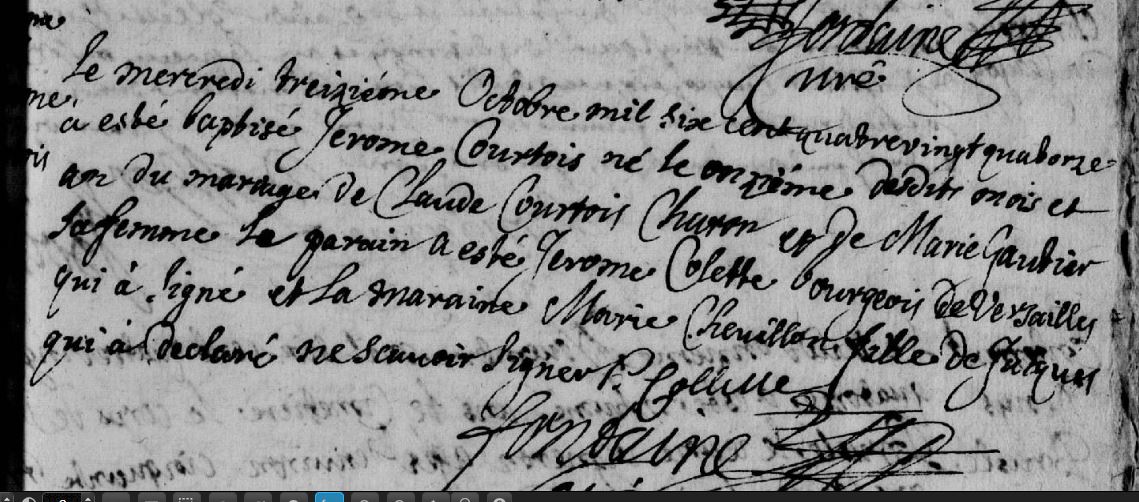 Fondaine
curé
Le mercredi treiziéme Octobre mil six cent quatrevingt quatorze
a esté baptisé Jerome Courtois né le onziéme desdits mois et
an du mariage de Claude Courtois Charon et de Marie Gautier
sa femme le parain a esté Jerome Colette bourgeois de Versailles
qui à signé et la maraine Marie Chevillon fille de Jacques
qui à declaré ne scavoir signer
Collette
Fondaine